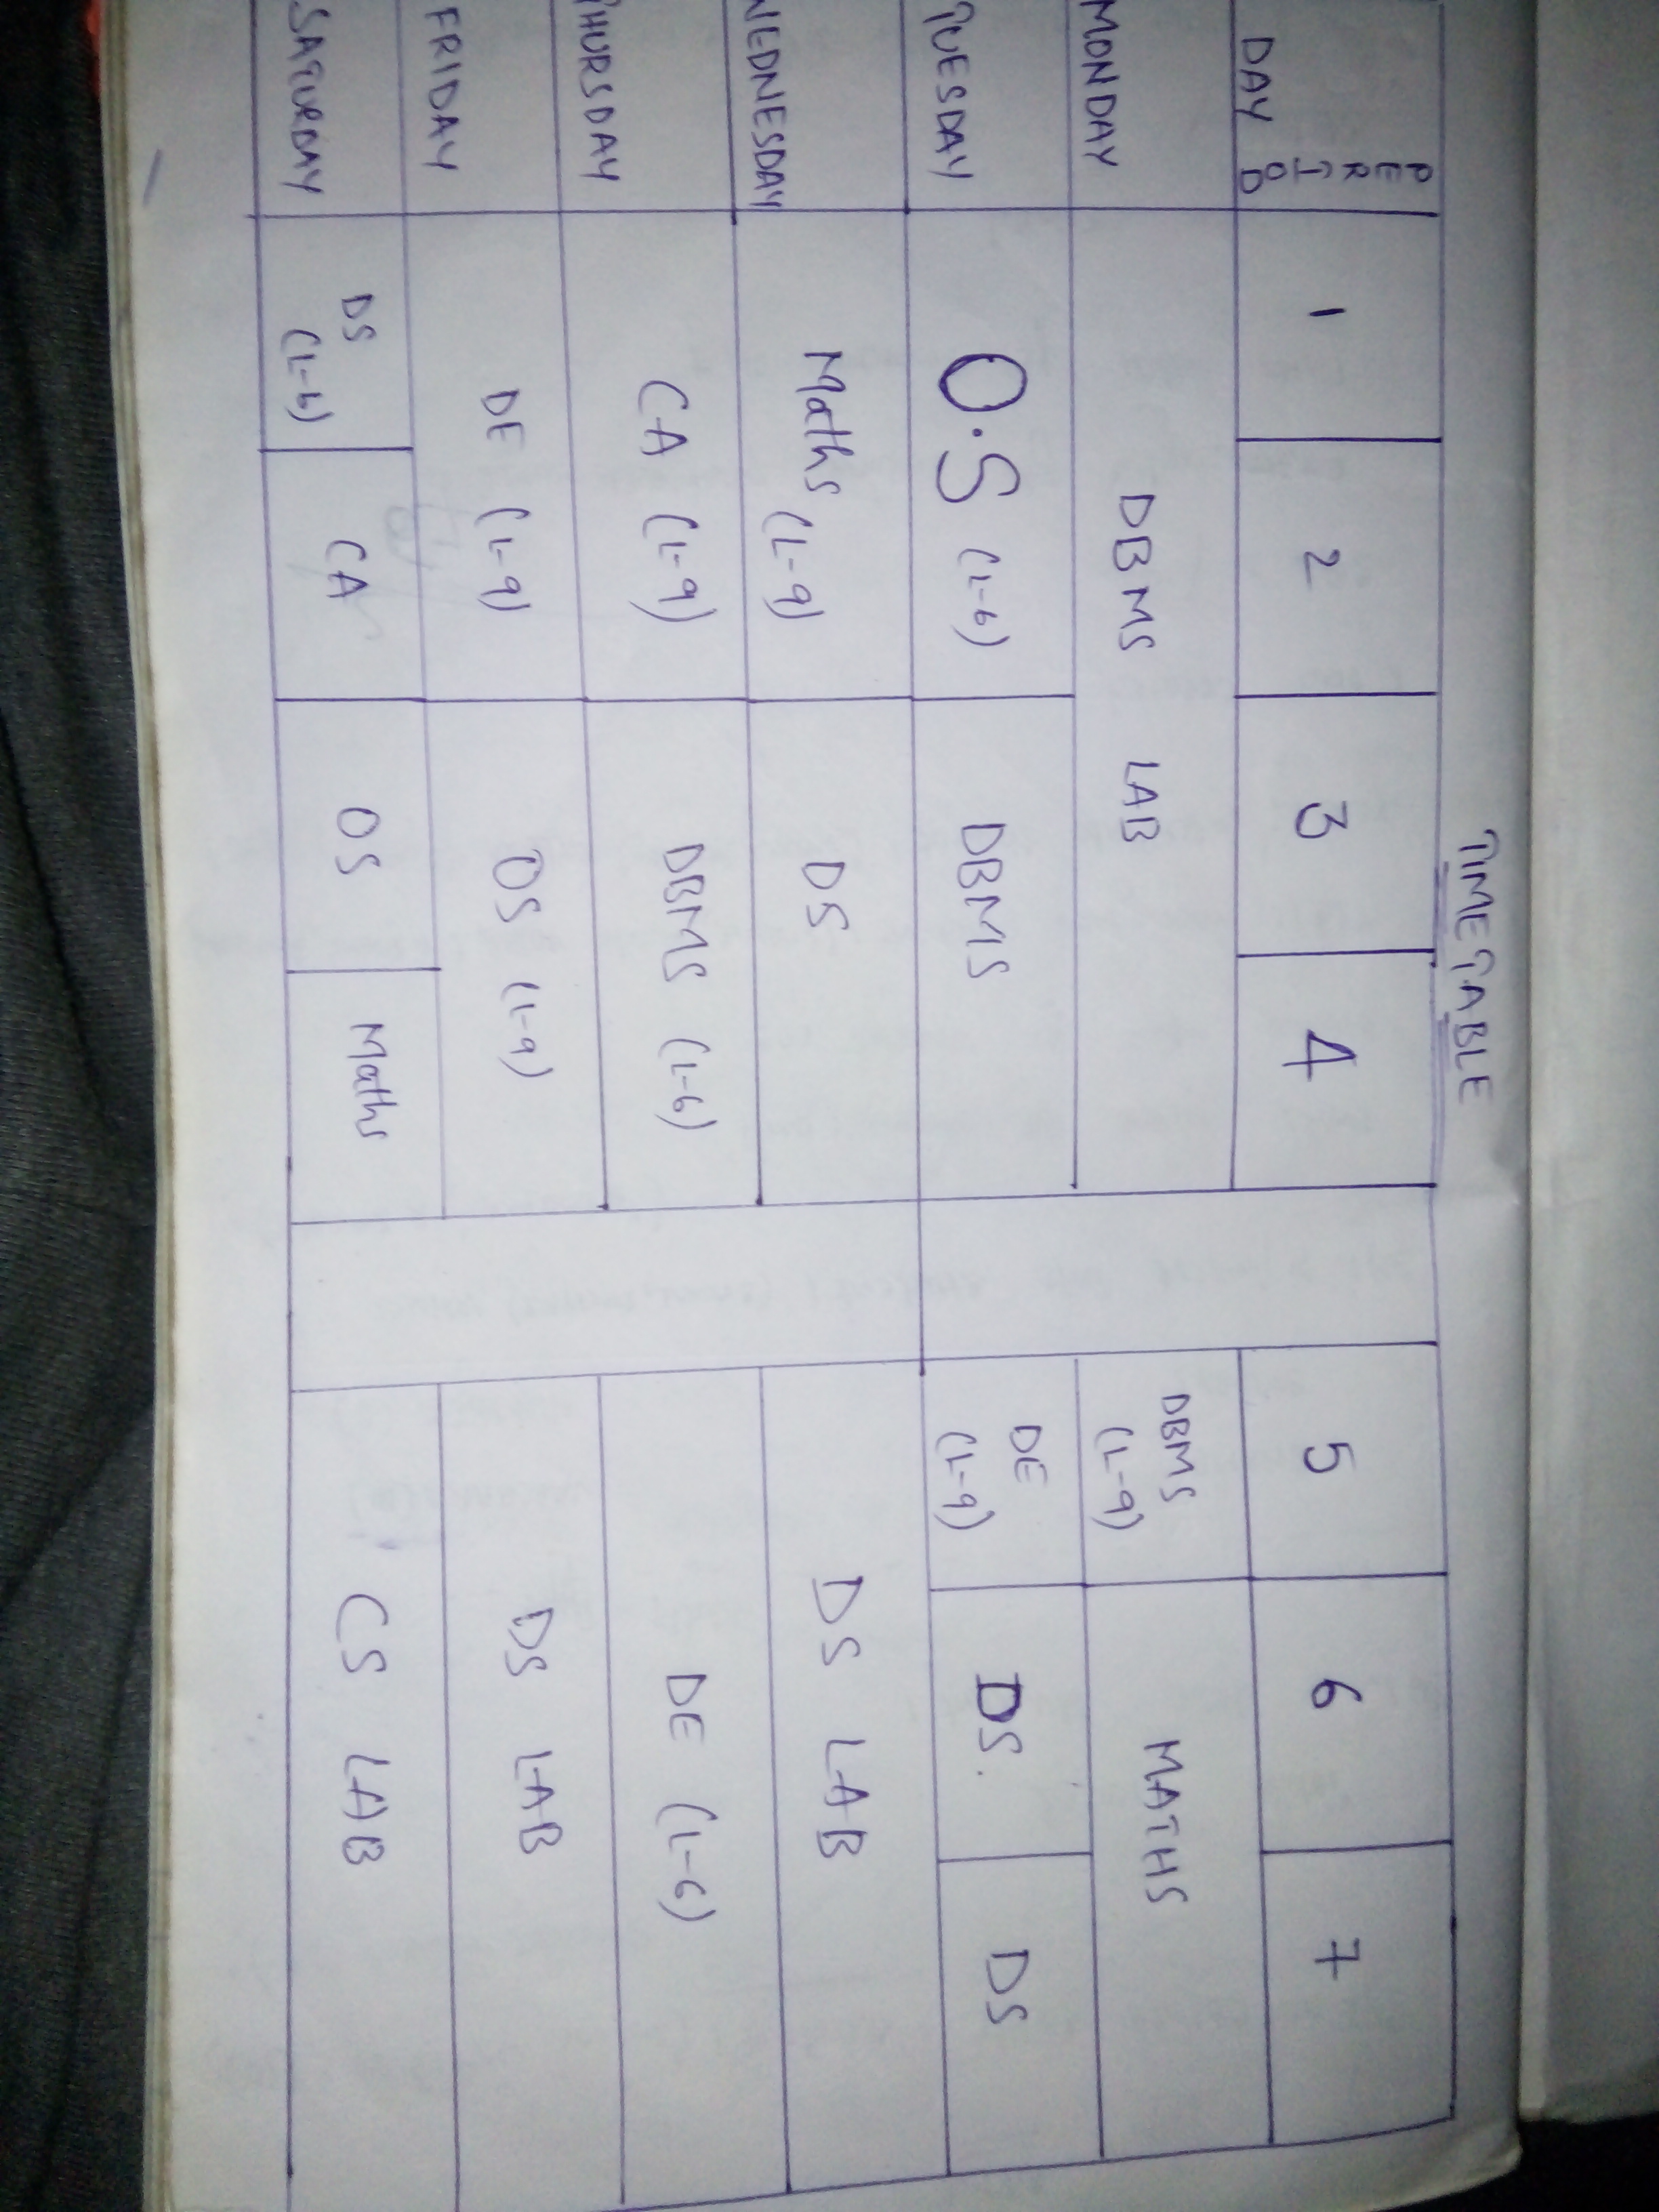 TIMETABLE
DAY PERIOD 1 2 3 4 5 6 7
MONDAY DBMS LAB DBMS (L-9) MATHS
TUESDAY O.S (L-6) DBMS DE (L-9) DS. DS
WEDNESDAY Maths (L-9) DS DS LAB
THURSDAY CA (L-9) DBMS (L-6) DE (L-6)
FRIDAY DE (L-9) OS (L-9) DS LAB
SATURDAY DS (L-6) CA OS Maths CS LAB